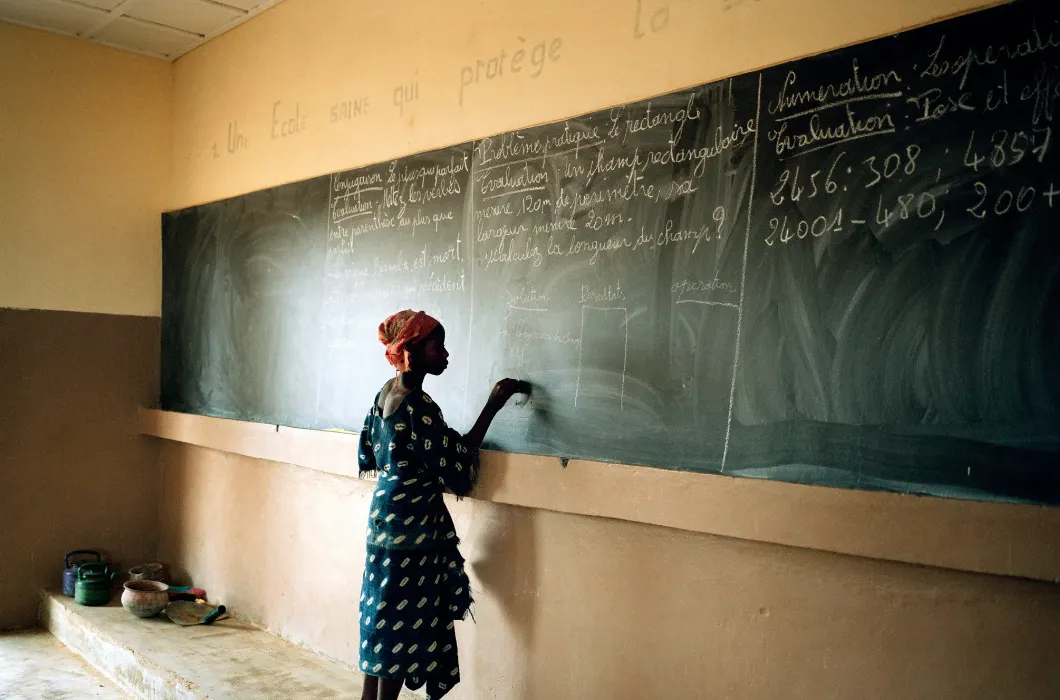 1. Une École SAINE qui protège la
Conjugaison Le plusque parfait
Evaluation : Mets les verbes
entre parenthèse au plus que
parfait
est mort
Problème pratique Le rectangle
Evaluation : Un champ rectangulaire
mesure 120m de peremètre, sa
largeur mesure 20m.
calculez la longueur du champ?
Solution Résultats opération
Numération : Les opérati
Evaluation : Pose et eff
2456 : 308 ; 4857
24001 - 480 ; 200 +